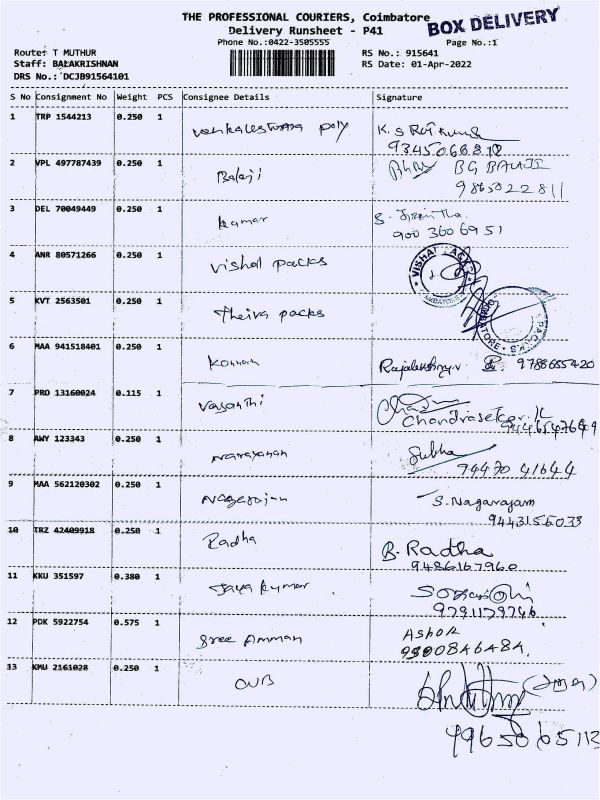 THE PROFESSIONAL COURIERS, Coimbatore
BOX DELIVERY
Delivery Runsheet - P41
Phone No.:0422-3505555
Page No.:1
Route: T MUTHUR
RS No.: 915641
Staff: BALAKRISHNAN
RS Date: 01-Apr-2022
DRS No.: DCJB91564101
S No Consignment No Weight PCS Consignee Details Signature
1 TRP 1544213 0.250 1 poly K.S
2 VPL 497787439 0.250 1 Balaji BG BALAJI
9865022811
3 DEL 70049449 0.250 1 kumar S.
900 360 6951
4 ANR 80571266 0.250 1 Vishal packs VISHAL PACKS
5 KVT 2563501 0.250 1 Theiva packs
6 MAA 941518401 0.250 1 Kannan 9788655420
7 PRO 13160024 0.115 1 Vasanthi Chandrasekar.K
8 AWY 123343 0.250 1 Narayanan Subha
74470 41644
9 MAA 562120302 0.250 1 Nagarajan S. Nagarajam
9443155033
10 TRZ 42409918 0.250 1 Radha B. Radha
9486167960
11 KKU 351597 0.380 1 Jaya kumar
9791179746
12 PDK 5922754 0.575 1 Sree Amman Ashok
13 KMU 2161028 0.250 1 OVB
9965065113